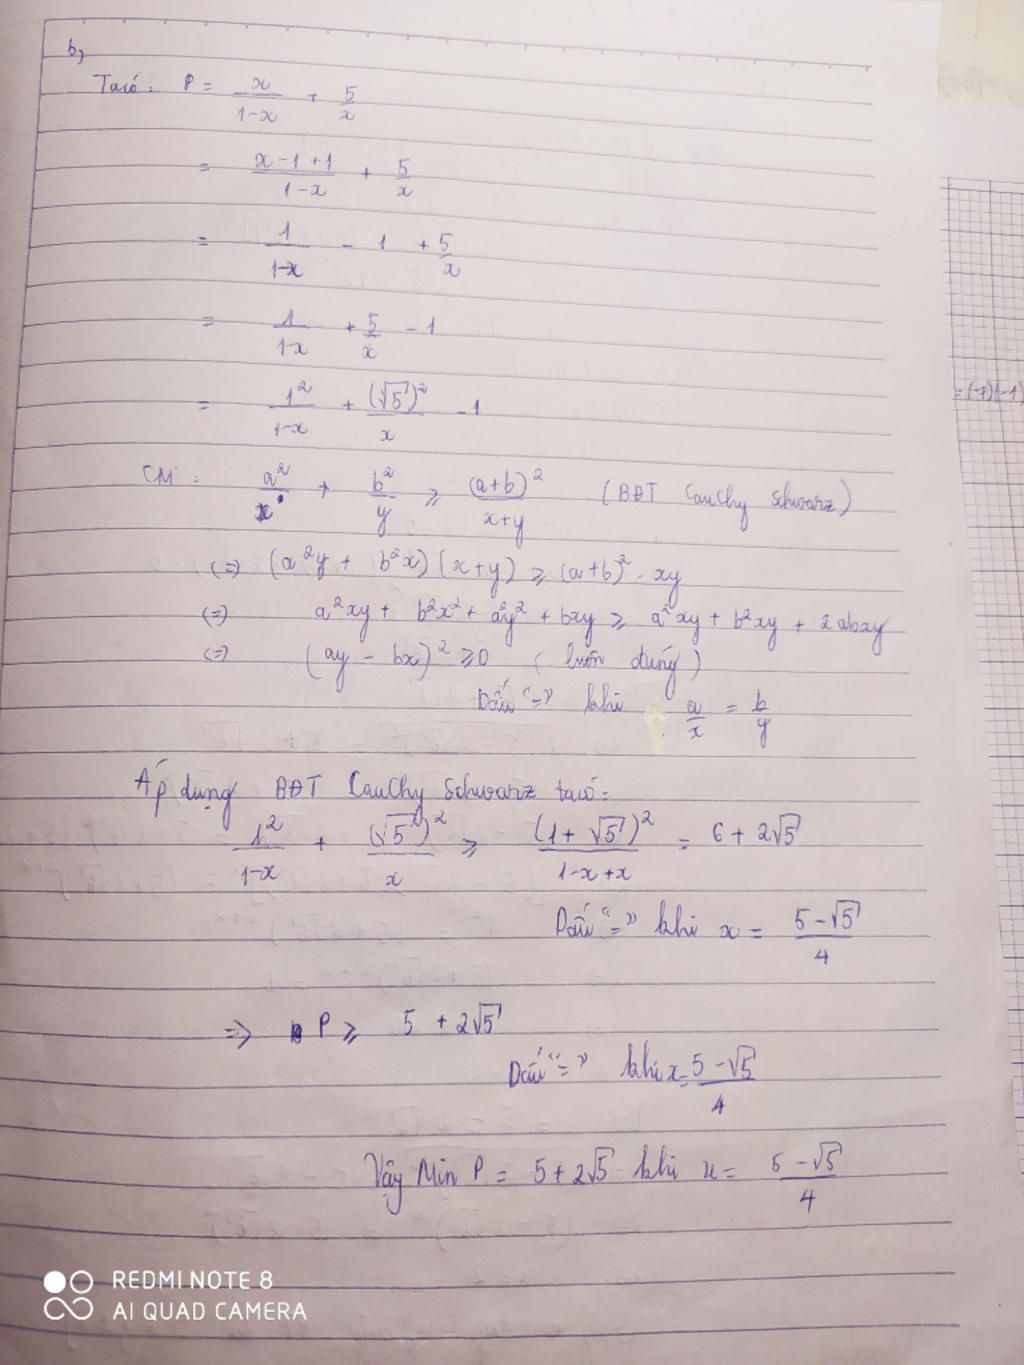 b,
Ta có: P = x/(1-x) + 5/x
= (x-1+1)/(1-x) + 5/x
= 1/(1-x) - 1 + 5/x
= 1/(1-x) + 5/x - 1
= 1²/(1-x) + (√5)²/x - 1
CM: a²/x + b²/y ≥ (a+b)²/(x+y) (BĐT Cauchy Schwarz)
(=) (a²y + b²x)(x+y) ≥ (a+b)² . xy
(=) a²xy + b²x² + a²y² + bxy ≥ a²xy + b²xy + 2abxy
(=) (ay - bx)² ≥ 0 (luôn đúng)
Dấu "=" khi a/x = b/y
Áp dụng BĐT Cauchy Schwarz ta có:
1²/(1-x) + (√5)²/x ≥ (1+√5)²/(1-x+x) = 6 + 2√5
Dấu "=" khi x = (5-√5)/4
=> P ≥ 5 + 2√5
Dấu "=" khi x = (5-√5)/4
Vậy Min P = 5 + 2√5 khi x = (5-√5)/4
= (-7)(-1)
REDMI NOTE 8
AI QUAD CAMERA